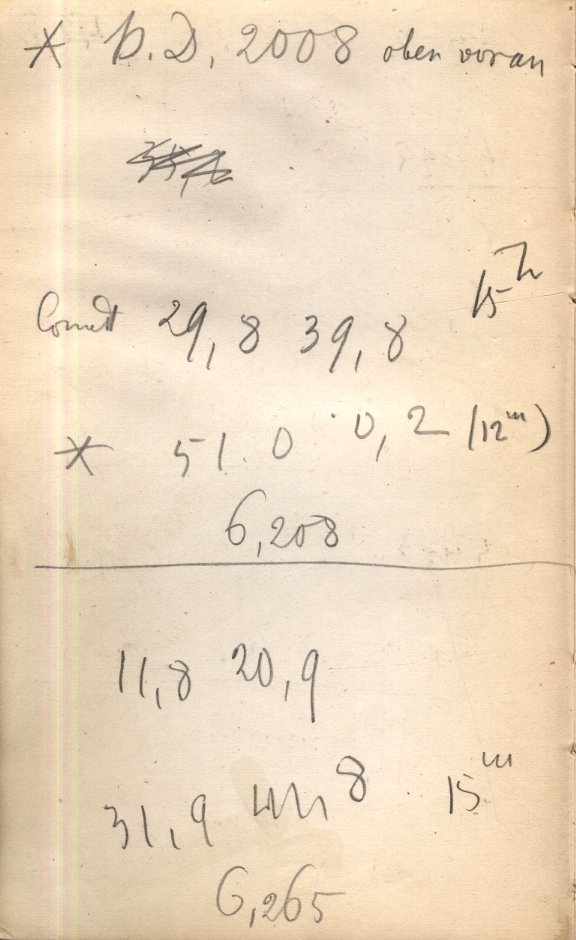 * B.D. 2008 oben voran
Comet 29,8 39,8 15h
* 51.0 0,2 (12m)
6,208
11,8 20,9
31,9 8 15m
6,265